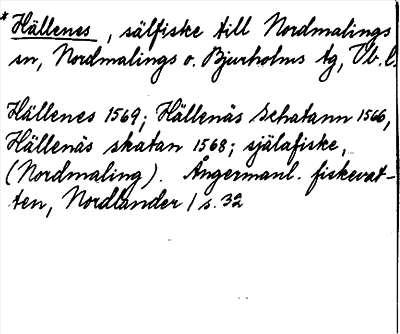 * Hällenes, sälfiske till Nordmalings
sn, Nordmalings o. Bjurholms tg, Vb. l.
Hällenes 1569; Hällenäs Schatann 1566,
Hällenäs skatan 1568; själafiske,
(Nordmaling). Ångermanl. fiskevat-
ten, Nordlander 1 s. 32